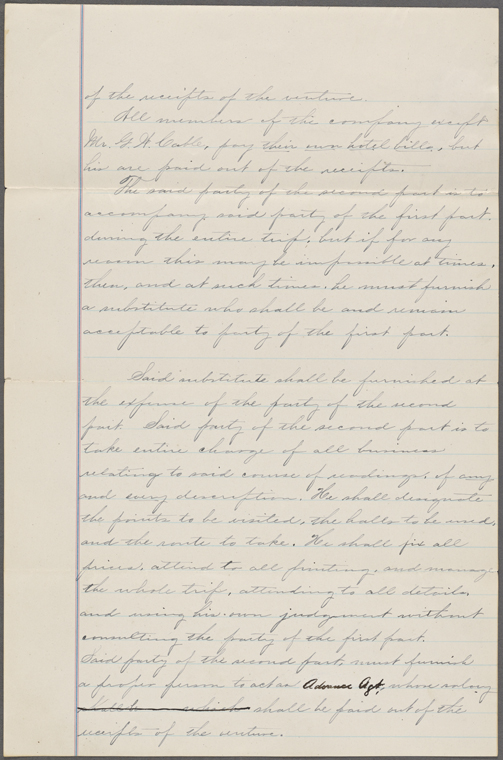 of the receipts of the venture.
All members of the company except
Mr. G. W. Cable, pay their own hotel bills, but
his are paid out of the receipts.
The said party of the second part is to
accompany said party of the first part
during the entire trip, but if for any
reason this may be impossible at times,
then, and at such times, he must furnish
a substitute who shall be and remain
acceptable to party of the first part.
Said substitute shall be furnished at
the expense of the party of the second
part. Said party of the second part is to
take entire charge of all business
relating to said course of readings, of any
and every description. He shall designate
the points to be visited, the halls to be used,
and the route to take. He shall fix all
prices, attend to all printing, and manage
the whole trip, attending to all details,
and using his own judgment without
consulting the party of the first part.
Said party of the second part must furnish
a proper person to act as Advance Agt, whose salary
shall be paid out of the
receipts of the venture.